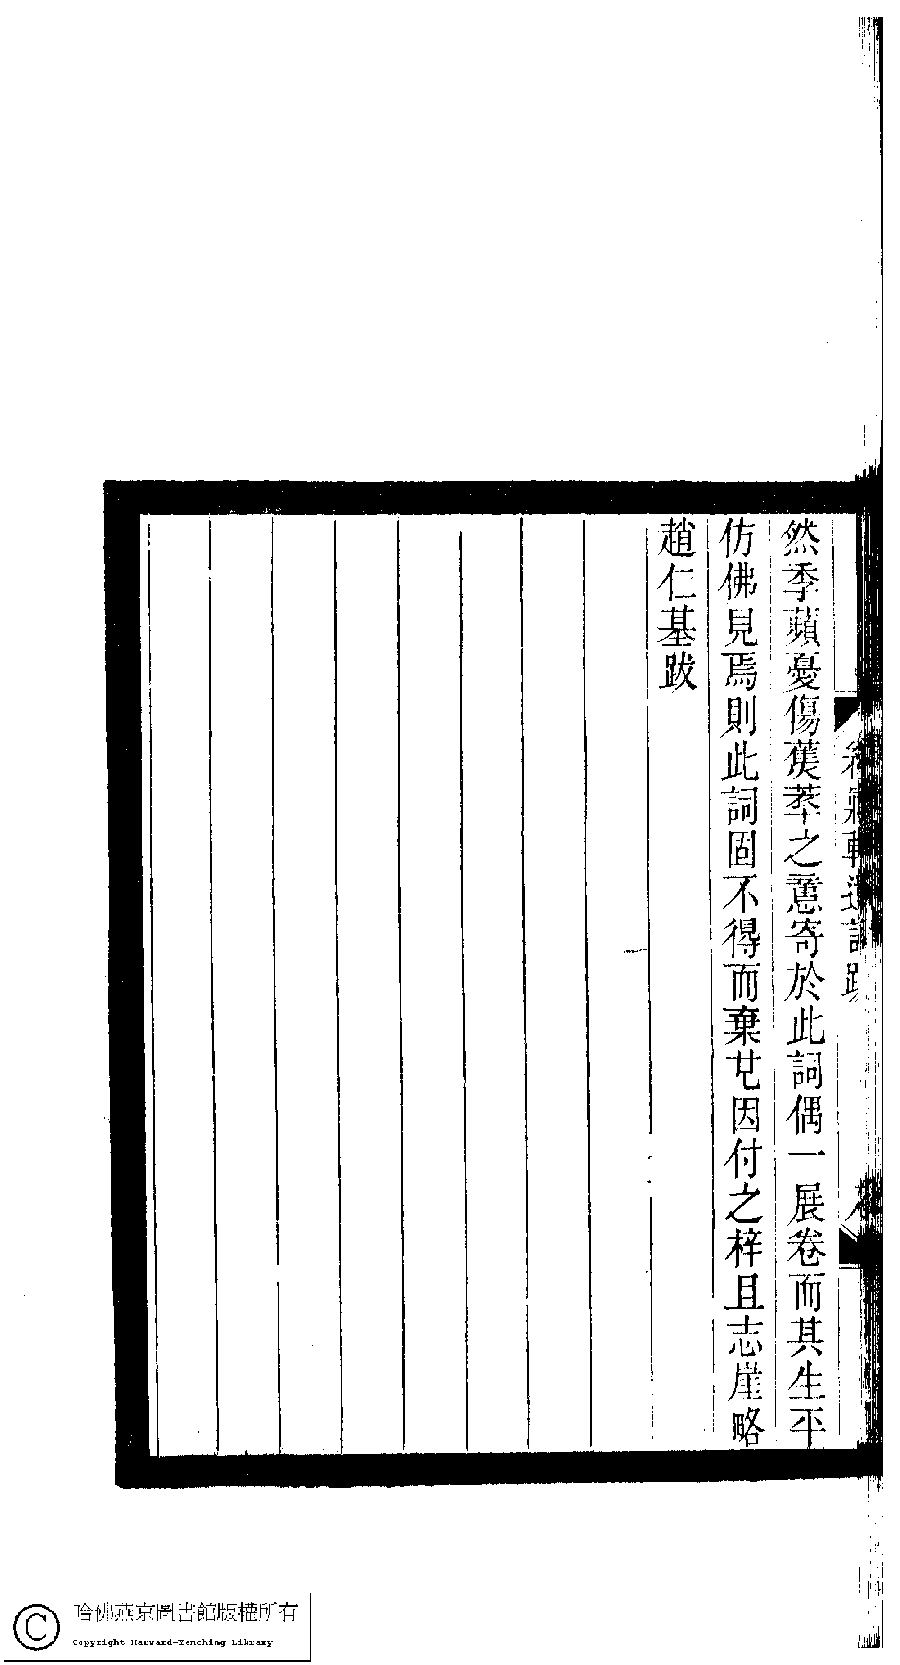 然季蘋憂傷蕉萃之意寄於此詞偶一展卷而其生平
仿佛見焉則此詞固不得而棄也因付之梓且志崖略
趙仁基跋
軒遺詞跋
哈佛燕京圖書館版權所有
Copyright Harvard-Yenching Library